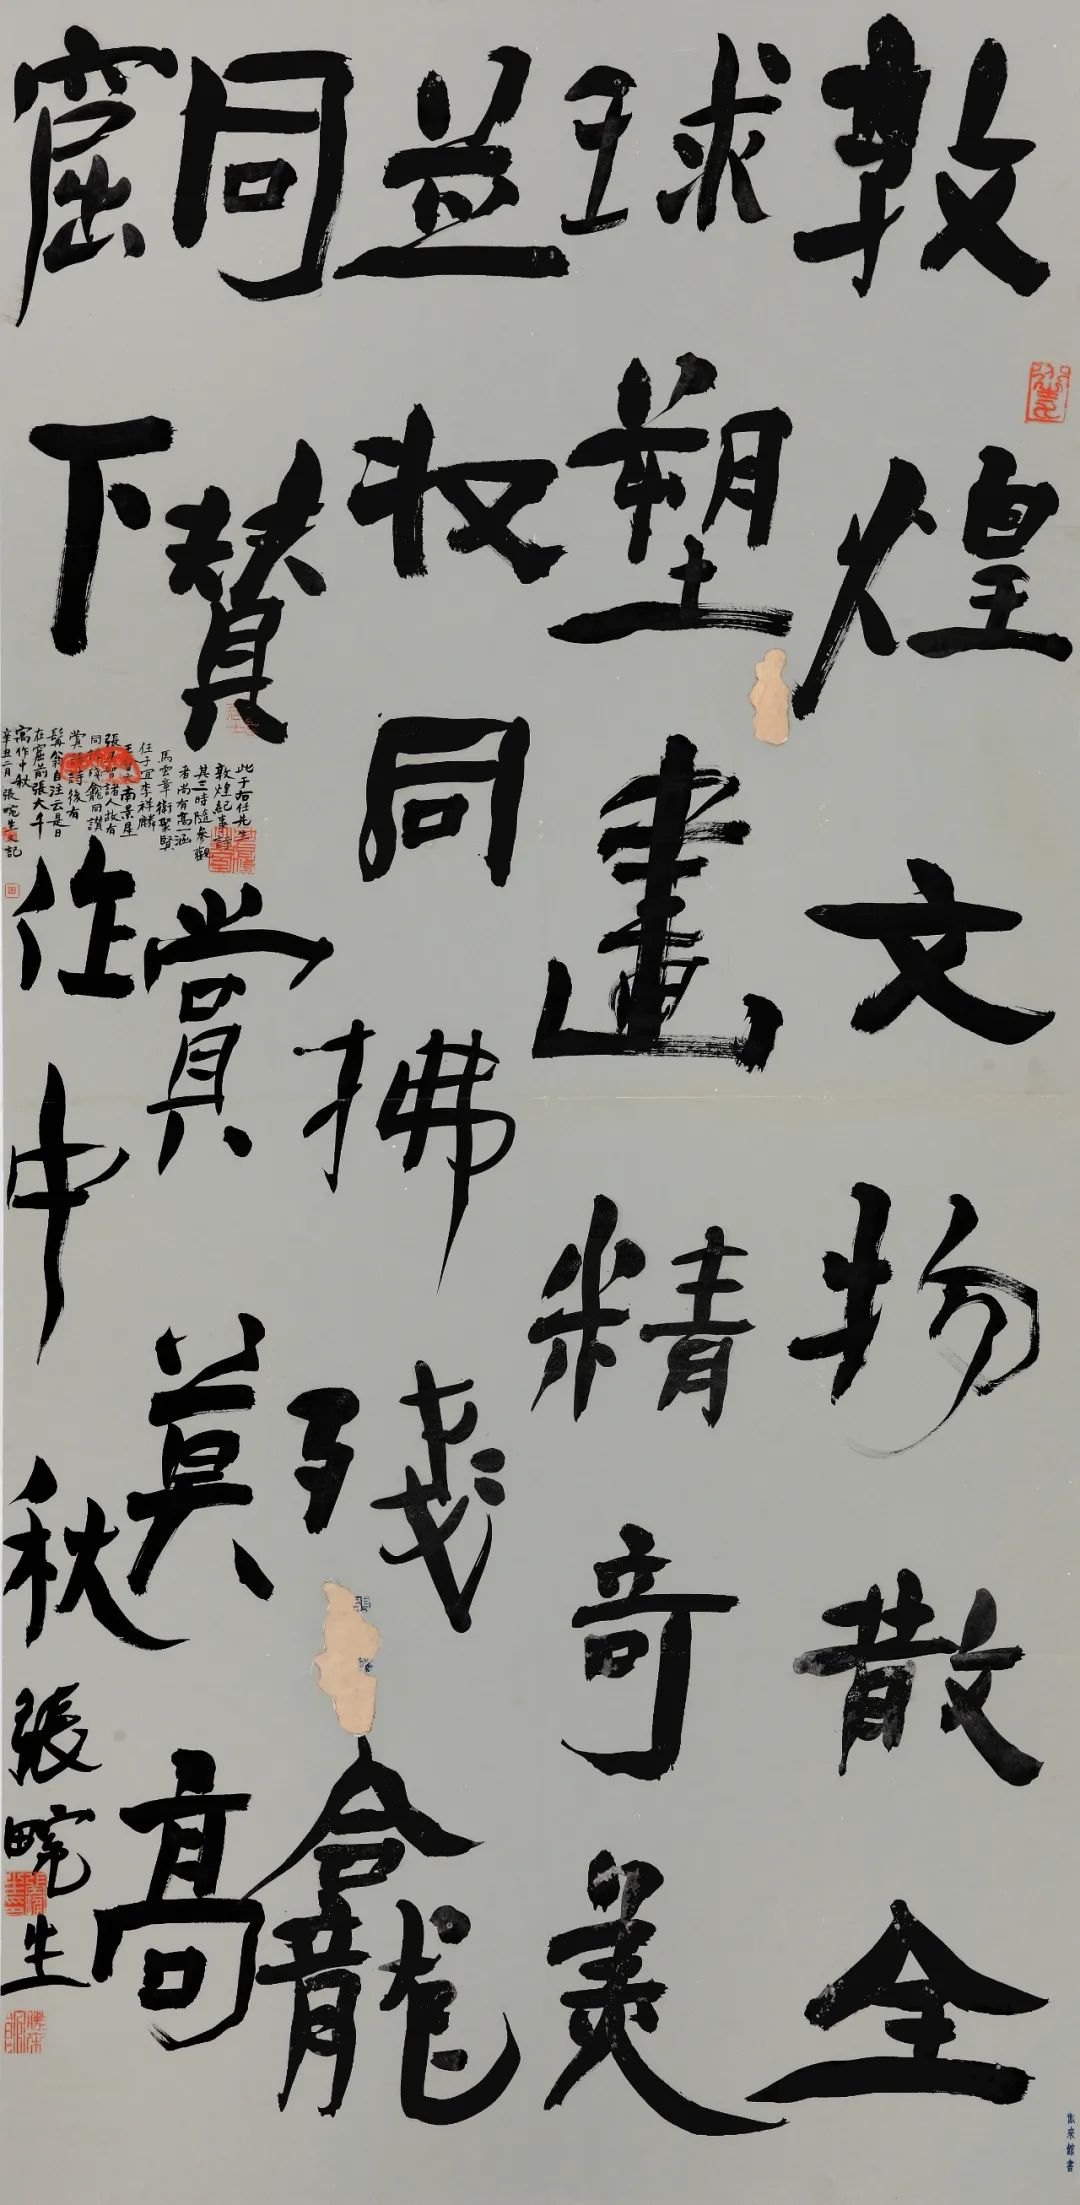 敦煌文物散全
球塑畫精奇美
並收同拂殘龕
同贊賞莫高
窟下作中秋 張畹生
此于右任先生
敦煌紀事詩
其三時隨參觀
者尚有高一涵
馬雲章衛聚賢
任子宜李祥麟
南景星
張 智諸人故有
同拂殘龕同讚
賞 詩後有
髯翁自注云是日
在窟前張大千
寓作中秋
辛丑二月張畹生又記